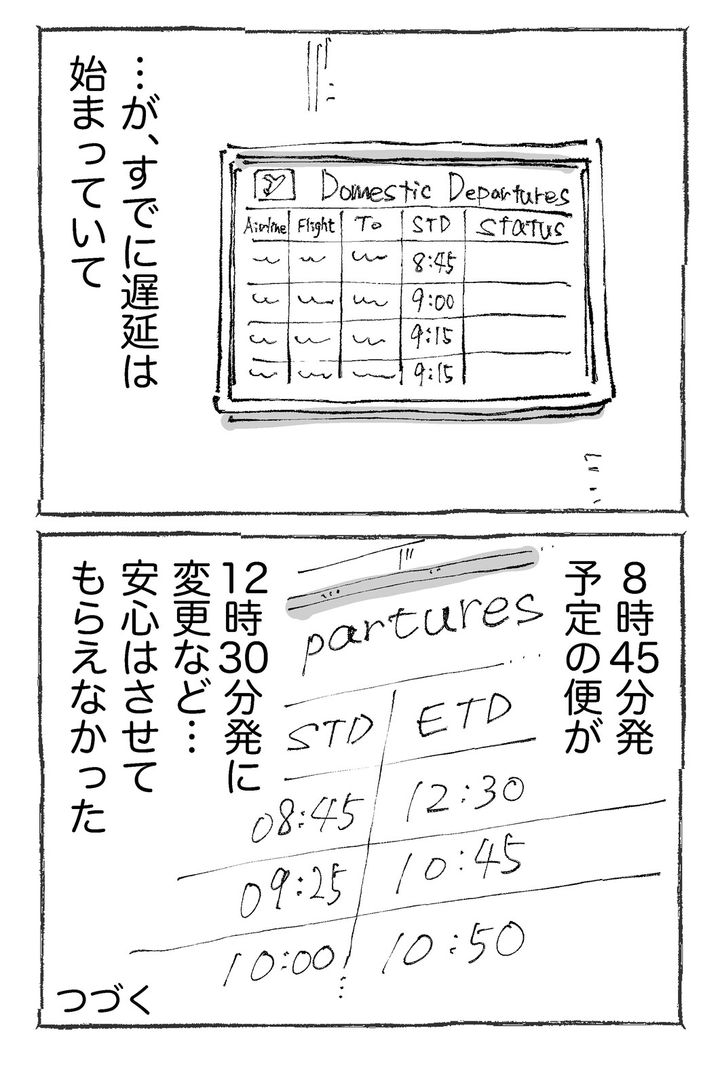 …が、すでに遅延は
始まっていて
Domestic Departures
Airline Flight To STD Status
8:45
9:00
9:15
9:15
8時45分発
予定の便が
partures
STD ETD
08:45 12:30
09:25 10:45
10:00 10:50
12時30分発に
変更など…
安心はさせて
もらえなかった
つづく